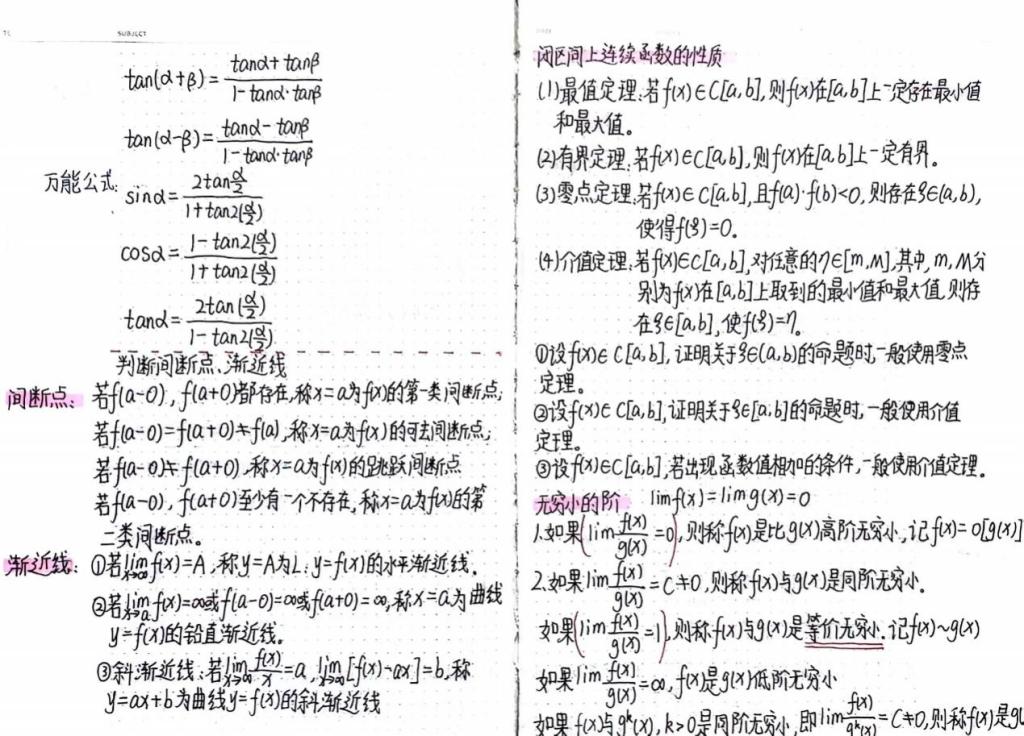 SUBJECT
tan(α+β) = (tanα + tanβ)/(1 - tanα·tanβ)
tan(α-β) = (tanα - tanβ)/(1 - tanα·tanβ)
万能公式:
sinα = (2tan α/2)/(1 + tan2(α/2))
cosα = (1 - tan2(α/2))/(1 + tan2(α/2))
tanα = (2tan(α/2))/(1 - tan2(α/2))
判断间断点、渐近线
间断点: 若f(a-0), f(a+0)都存在,称x=a为f(x)的第一类间断点;
若f(a-0)=f(a+0)≠f(a),称x=a为f(x)的可去间断点;
若f(a-0)≠f(a+0),称x=a为f(x)的跳跃间断点
若f(a-0), f(a+0)至少有一个不存在,称x=a为f(x)的第
二类间断点。
渐近线: ①若lim x→∞ f(x)=A,称y=A为L:y=f(x)的水平渐近线.
②若lim x→a f(x)=∞或f(a-0)=∞或f(a+0)=∞,称x=a为曲线
y=f(x)的铅直渐近线。
③斜渐近线:若lim x→∞ f(x)/x=a, lim x→∞ [f(x)-ax]=b,称
y=ax+b为曲线y=f(x)的斜渐近线
闭区间上连续函数的性质
(1)最值定理:若f(x)∈C[a,b],则f(x)在[a,b]上一定存在最小值
和最大值。
(2)有界定理:若f(x)∈C[a,b],则f(x)在[a,b]上一定有界。
(3)零点定理:若f(x)∈C[a,b],且f(a)·f(b)<0,则存在ξ∈(a,b),
使得f(ξ)=0。
(4)介值定理:若f(x)∈C[a,b],对任意的η∈[m,M],其中,m,M分
别为f(x)在[a,b]上取到的最小值和最大值,则存
在ξ∈[a,b],使f(ξ)=η。
①设f(x)∈C[a,b],证明关于ξ∈(a,b)的命题时,一般使用零点
定理。
②设f(x)∈C[a,b],证明关于ξ∈[a,b]的命题时,一般使用介值
定理。
③设f(x)∈C[a,b],若出现函数值相加的条件,一般使用介值定理。
无穷小的阶 limf(x)=limg(x)=0
1.如果(lim f(x)/g(x)=0),则称f(x)是比g(x)高阶无穷小,记f(x)=0[g(x)]
2.如果lim f(x)/g(x)=C≠0,则称f(x)与g(x)是同阶无穷小.
如果(lim f(x)/g(x)=1),则称f(x)与g(x)是等价无穷小.记f(x)~g(x)
如果lim f(x)/g(x)=∞,f(x)是g(x)低阶无穷小
如果f(x)与gᵏ(x),k>0是同阶无穷小,即lim f(x)/gᵏ(x)=C≠0,则称f(x)是g(